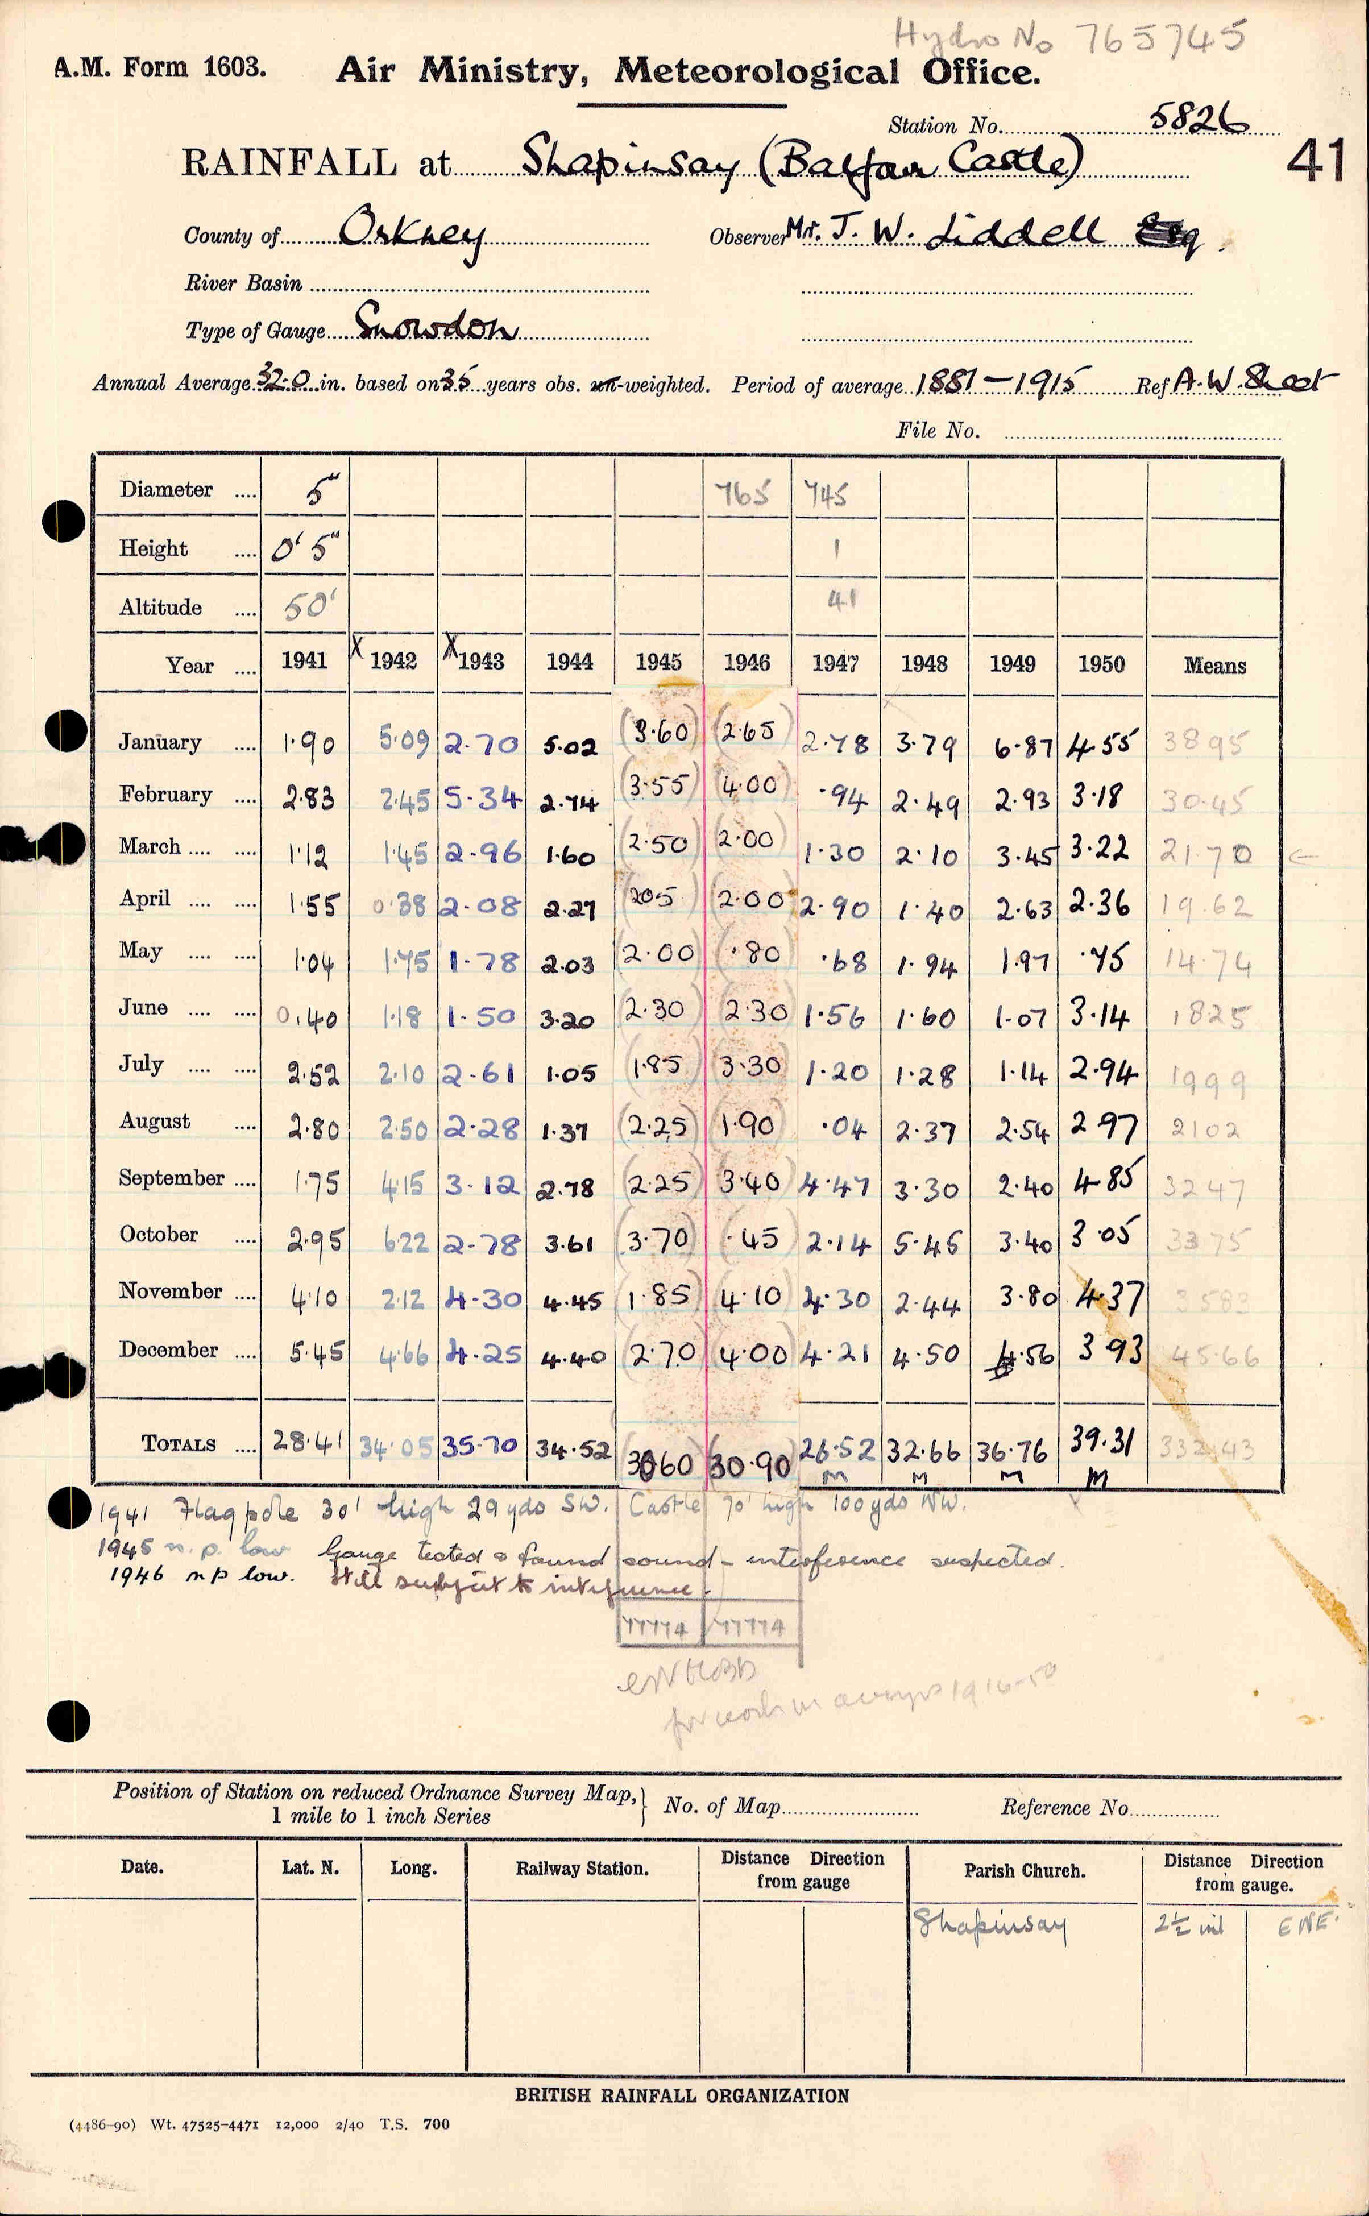 Hydro No 765745
A.M. Form 1603. Air Ministry, Meteorological Office.
Station No. 5826
41
RAINFALL at Shapinsay (Balfour Castle)
County of Orkney Observer Mr. J. W. Liddell Esq.
River Basin
Type of Gauge Snowdon
Annual Average 32.0 in. based on 35 years obs. un-weighted. Period of average 1881-1915 Ref A.W. Sheet
File No.
Diameter .... 5" 765 745
Height .... 0' 5" 1
Altitude .... 50' 41
Year .... 1941 X 1942 X 1943 1944 1945 1946 1947 1948 1949 1950 Means
January .... 1.90 5.09 2.70 5.02 (3.60) (2.65) 2.78 3.79 6.87 4.55 3895
February .... 2.83 2.45 5.34 2.74 (3.55) (4.00) .94 2.49 2.93 3.18 30.45
March .... .... 1.12 1.45 2.96 1.60 (2.50) (2.00) 1.30 2.10 3.45 3.22 21.70 ←
April .... .... 1.55 0.38 2.08 2.27 (205) (2.00) 2.90 1.40 2.63 2.36 19.62
May .... .... 1.04 1.75 1.78 2.03 (2.00) (.80) .68 1.94 1.97 .75 14.74
June .... .... 0.40 1.18 1.50 3.20 (2.30) (2.30) 1.56 1.60 1.07 3.14 1825
July .... .... 2.52 2.10 2.61 1.05 (1.85) (3.30) 1.20 1.28 1.14 2.94 1999
August .... 2.80 2.50 2.28 1.37 (2.25) (1.90) .04 2.37 2.54 2.97 2102
September .... 1.75 4.15 3.12 2.78 (2.25) (3.40) 4.47 3.30 2.40 4.85 3247
October .... 2.95 6.22 2.78 3.61 (3.70) (.45) 2.14 5.45 3.40 3.05 3375
November .... 4.10 2.12 4.30 4.45 (1.85) (4.10) 4.30 2.44 3.80 4.37 3583
December .... 5.45 4.66 4.25 4.40 (2.70) (4.00) 4.21 4.50 4.56 3.93 45.66
TOTALS .... 28.41 34.05 35.70 34.52 (3060) (30.90) 26.52 32.66 36.76 39.31 332.43
M M M M
1941 Flagpole 30' high 29 yds SW. Castle 70' high 100 yds NW.
1945 n.p. low Gauge tested & found sound - interference suspected.
1946 n p low. Still subject to interference.
77774 77774
ESTD
for work in averages 1916-50
Position of Station on reduced Ordnance Survey Map, 1 mile to 1 inch Series } No. of Map Reference No.
Date. Lat. N. Long. Railway Station. Distance Direction from gauge Parish Church. Distance Direction from gauge.
Shapinsay 2½ ml ENE.
BRITISH RAINFALL ORGANIZATION
(4486-90) Wt. 47525-4471 12,000 2/40 T.S. 700